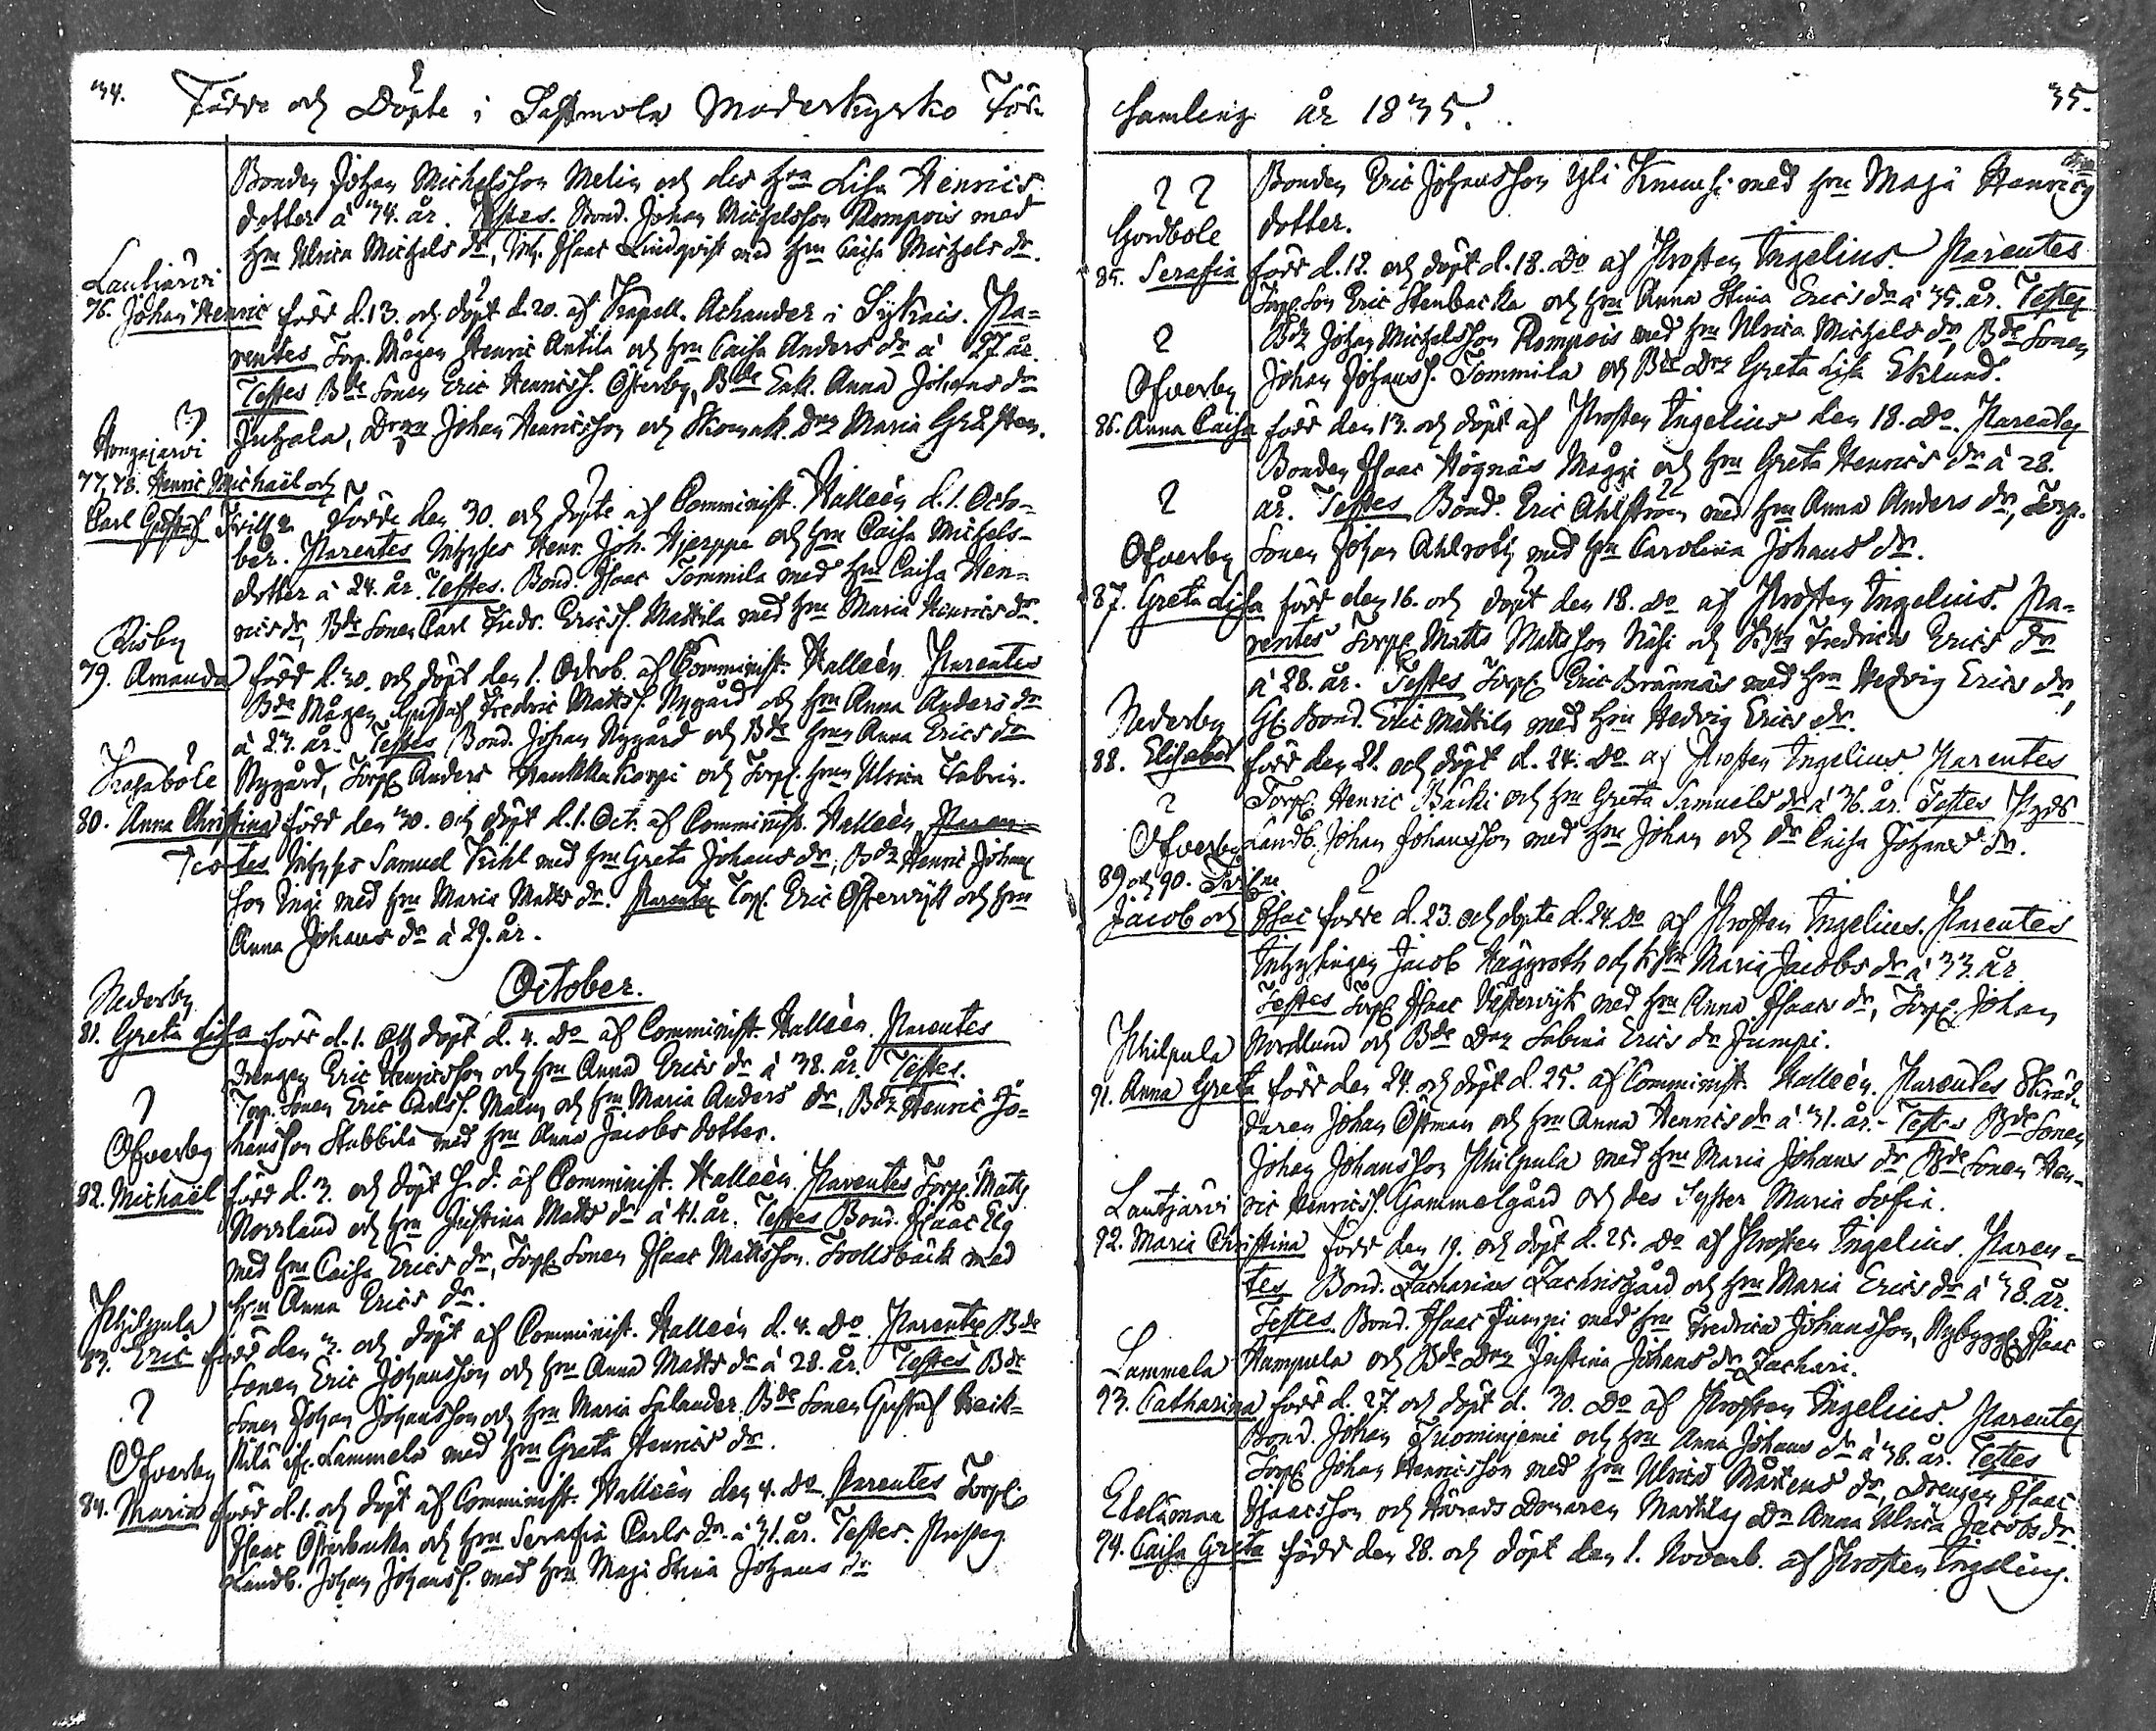 34. Födde och Döpte i Sastmola Moderkyrko För-
Bonden Johan Michelsson Melin och des H:u Lisa Henrics
dotter á 34. år. Testes. Bond. Johan Michelsson Rompois med
H:u Ulrica Michels dr, Inh. Isaac Lindqvist med H:u Caisa Michels dr.
Lautjärvi
76. Johan Henric född d. 13. och döpt d. 20. af Capell. Achander i Sykais. Pa-
rentes Torp. Mågen Henric Antila och H:u Caisa Anders dr á 27. år.
Testes Bde Sonen Eric Henricss. Österby, Bde Enk. Anna Johans dr
Juhola, Drgn Johan Henricsson och Skomak. Dtr Maria Grästen.
Hongajärvi
77, 78. Henric Michaël och
Carl Gustaf Trill:r Födde den 30. och döpte af Comminist. Malleèn d. 1. Octo-
ber. Parentes Inhyses Henr. Joh. Hjerppe och H:u Caisa Michels-
dotter á 24. år. Testes. Bond. Isaac Tommila med H:u Caisa Hen-
rics dr, Bde Sonen Carl Fredr. Ericss. Mattila med H:u Maria Henrics dr.
Påsby
79. Amanda född d. 30. och döpt den 1. Octob. af Comminist. Malleèn Parentes
Bde Mågen Gustaf Fredric Mattss. Nygård och H:u Anna Anders dr
á 23. år. Testes Bond. Johan Nygård och Bde H:un Anna Erics dr
Trasaböle Nygård, Torp. Anders Haukkakorpi och Torp. H:un Ulrica Fabrin.
80. Anna Christina född den 30. och döpt d. 1. Oct. af Comminist. Malleèn Paren-
Tes tes Inhyses Samuel Krihl med H:u Greta Johans dr, Bd Henric Johans
son Ingi med H:u Maria Matts dr. Parentes Torp. Eric Östervik och H:u
Anna Johans dr á 29. år.
October.
Nederby
81. Greta Lisa född d. 1. och döpt d. 4. do af Comminist. Malleèn. Parentes
Drengen Eric Henricsson och H:u Anna Erics dr á 38. år. Testes.
Torp. Sonen Eric Carlss. Malin och H:u Maria Anders dr, Bd Henric Jo-
Öfverby hansson Stubbila med H:u Anna Jacobs dotter.
82. Michaël född d. 3. och döpt s. d. af Comminist. Malleèn. Parentes Torp. Matts
Norrlund och H:u Justina Matts dr á 41. år. Testes Bond. Isaac Elg
med H:u Caisa Erics dr, Torp. Sonen Isaac Mattsson Trollsbäck med
Philpula H:u Anna Erics dr.
83. Eric född den 3. och döpt af Comminist. Malleèn d. 4. do. Parentes Bde
Sonen Eric Johansson och H:u Anna Matts dr á 28. år. Testes Bde
Sonen Johan Johansson och H:u Maria Salander, Bde Sonen Gustaf Kraik-
Öfverby kilä Lammela med H:u Greta Henrics dr.
84. Maria född d. 1. och döpt af Comminist. Malleèn den 4. do. Parentes Torp.
Isaac Österbacka och H:u Serafia Carls dr á 31. år. Testes. Prosteg.
Landb. Johan Johanss. med H:u Maja Stina Johans dr
Samling år 1835. 35.
Bonden Eric Johansson Yli Knuusi med H:u Maja Henrics
Hordbole dotter.
85. Serafia född d. 12. och döpt d. 18. do af Prosten Ingelius. Parentes
Torp. Son Eric Stenbacka och H:u Anna Stina Erics dr á 35. år. Testes
Bd Johan Michelsson Rompois med H:u Ulrica Michels dr, Bde Sonen
Öfverby Johan Johanss. Tommila och Bde Dtr Greta Lisa Eklund.
86. Anna Caisa född den 13. och döpt af Prosten Ingelius den 18. do. Parentes
Bonden Isaac Högnäs Måggi och H:u Greta Henrics dr á 28.
år. Testes Bond. Eric Ahlström med H:u Anna Anders dr, Torp.
Öfverby Sonen Johan Ahlroth med H:u Carolina Johans dr.
87. Greta Lisa född den 16. och döpt den 18. do af Prosten Ingelius. Pa-
rentes Torp. Matts Mattsson Näsi och H:u Fredrica Erics dr
á 28. år. Testes Torp. Eric Brännäs med H:u Hedvig Erics dr,
Nederby Gl. Bond. Eric Mattila med H:u Hedvig Erics dr.
88. Elisabet född den 21. och döpt d. 24. do af Prosten Ingelius. Parentes
Torp. Henric Bäcki och H:u Greta Samuels dr á 36. år. Testes Pgds
Öfverby Landb. Johan Johansson med H:u Johan och dr Caisa Johans dr.
89 och 90. Trill:ne
Jacob och Isac födde d. 23. och döpte d. 24. do af Prosten Ingelius. Parentes
Inhysingen Jacob Häggroth och H:u Maria Jacobs dr á 33. år
Testes Torp. Isaac Västervik med H:u Anna Isaacs dr, Torp. Johan
Philpula Nordlund och Bde Dtr Sabina Erics dr Jumpi.
91. Anna Greta född den 24. och döpt d. 25. af Comminist. Malleèn. Parentes Skräd-
daren Johan Östman och H:u Anna Henrics dr á 31. år. Testes Bde Sonen
Johan Johansson Philpula med H:u Maria Johans dr, Bde Sonen Hen-
Lautjärvi ric Henricss. Gammelgård och des Syster Maria Sofia.
92. Maria Christina född den 19. och döpt d. 25. do af Prosten Ingelius. Paren-
tes Bond. Zacharias Zachrisgård och H:u Maria Erics dr á 38. år.
Testes. Bond. Isaac Jumpi med H:u Fredrica Johansson, Nybygg. Isaac
Lammela Hampula och Bde Dtr Justina Johans dr Zachari.
93. Catharina född d. 27. och döpt d. 30. do af Prosten Ingelius. Parentes
Bond. Johan Tuominjemi och H:u Anna Johans dr á 38. år. Testes
Torp. Johan Henricsson med H:u Ulrica Mårtens dr, Drengen Isaac
Etelämaa Isaacsson och Härads Domaren Martilas dr Anna Ulrica Jacobs dr.
94. Caisa Greta född den 28. och döpt den 1. Novemb. af Prosten Ingelius.